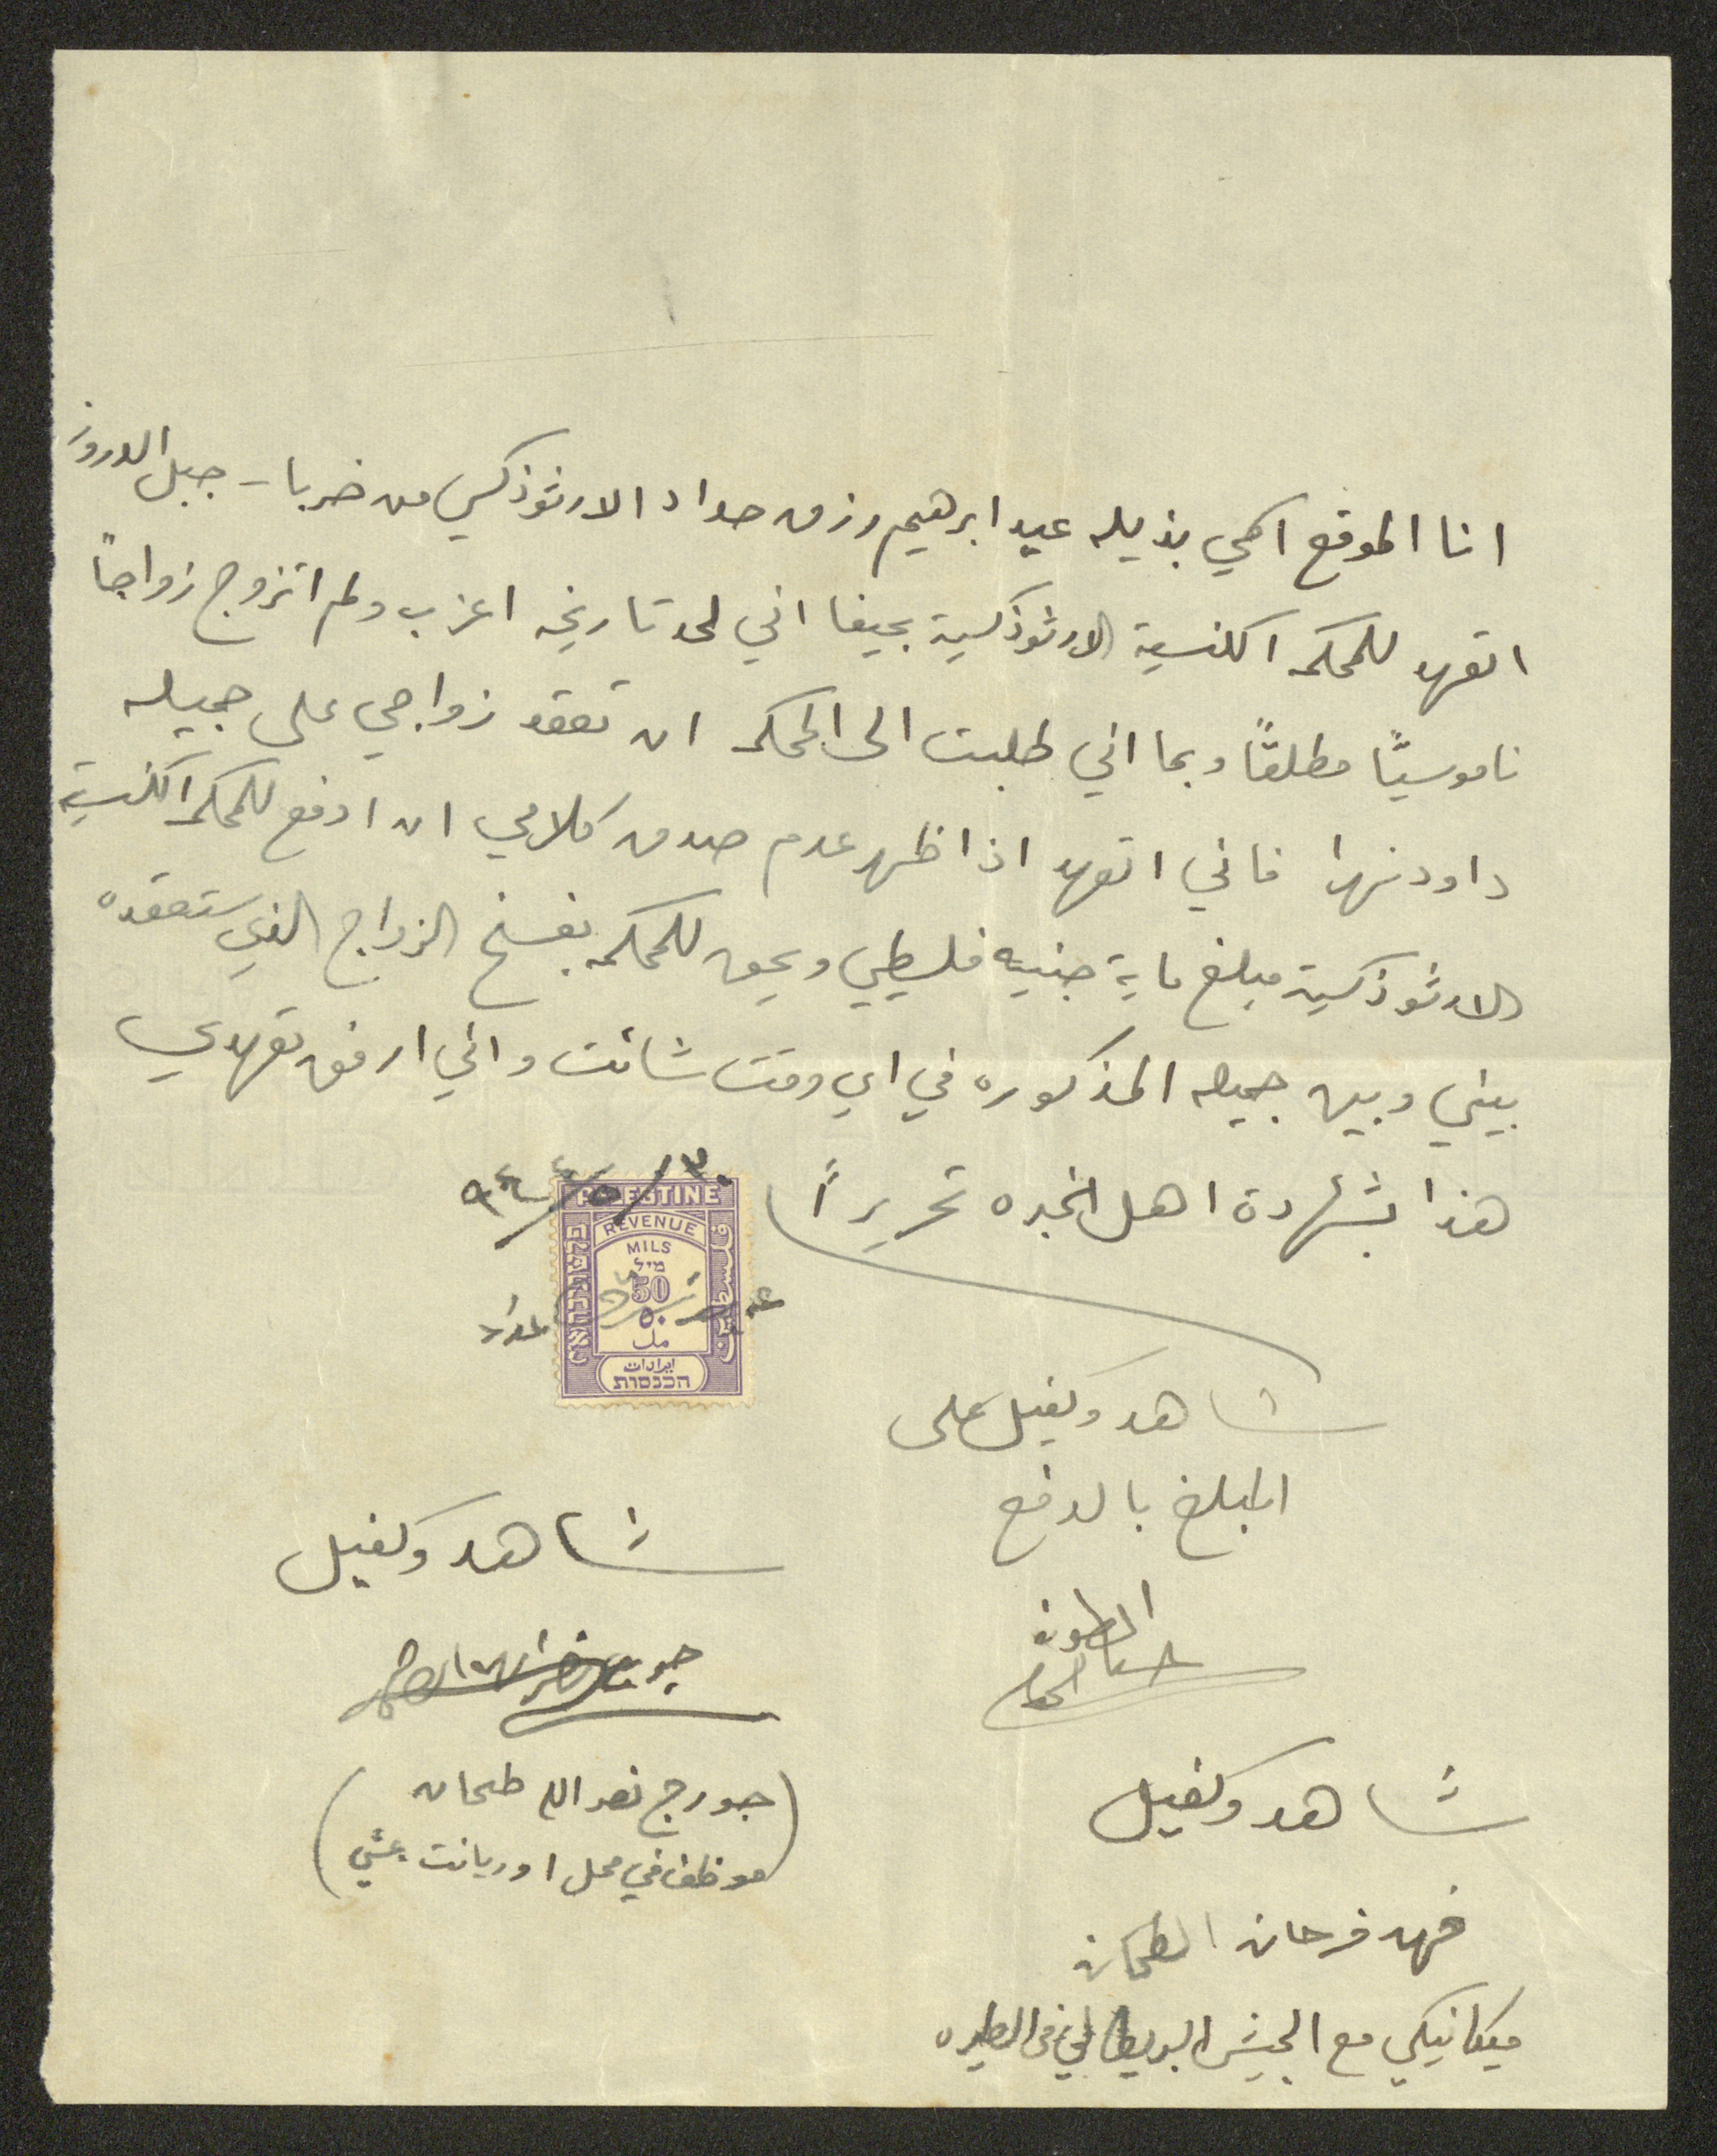 انا الموقع اسمي بذيله عيد ابرهيم رزق حداد الارثوذكسي من خربا - جبل الدروز
اتعهد للمحكمه الكنسية الارثوذكسية بحيفا اني لحد تاريخه اعزب ولم اتزوج زواجاً
ناموسيًا مطلقًا وبما اني طلبت الى المحكمه ان تعقد زواجي على جميله
داود نهرا فاني اتعهد اذا ظهر عدم صدق كلامي ان ادفع للمحكمه الكنسية
الارثوذكسية مبلغ ماية جنيه فلسطيني ويحق للمحكمه بفسخ الزواج الذي ستعقده
بيني وبين جميله المذكوره في اي وقت شائت واني ارفق تعهدي
هذا بشهادة اهل الخبره تحريرًا
PALESTINE
REVENUE
MILS
מיל
50
٥٠
مل
ايرادات
הכנסות
فلسطين
شاهد وكفيل على
المبلغ بالدفع
شاهد وكفيل
(جورج نصرالله طحان
موظف في محل اوريانت)
شاهد وكفيل
فهد فرحان الطحان
ميكانيكي مع الجيش البريطاني في الطيره